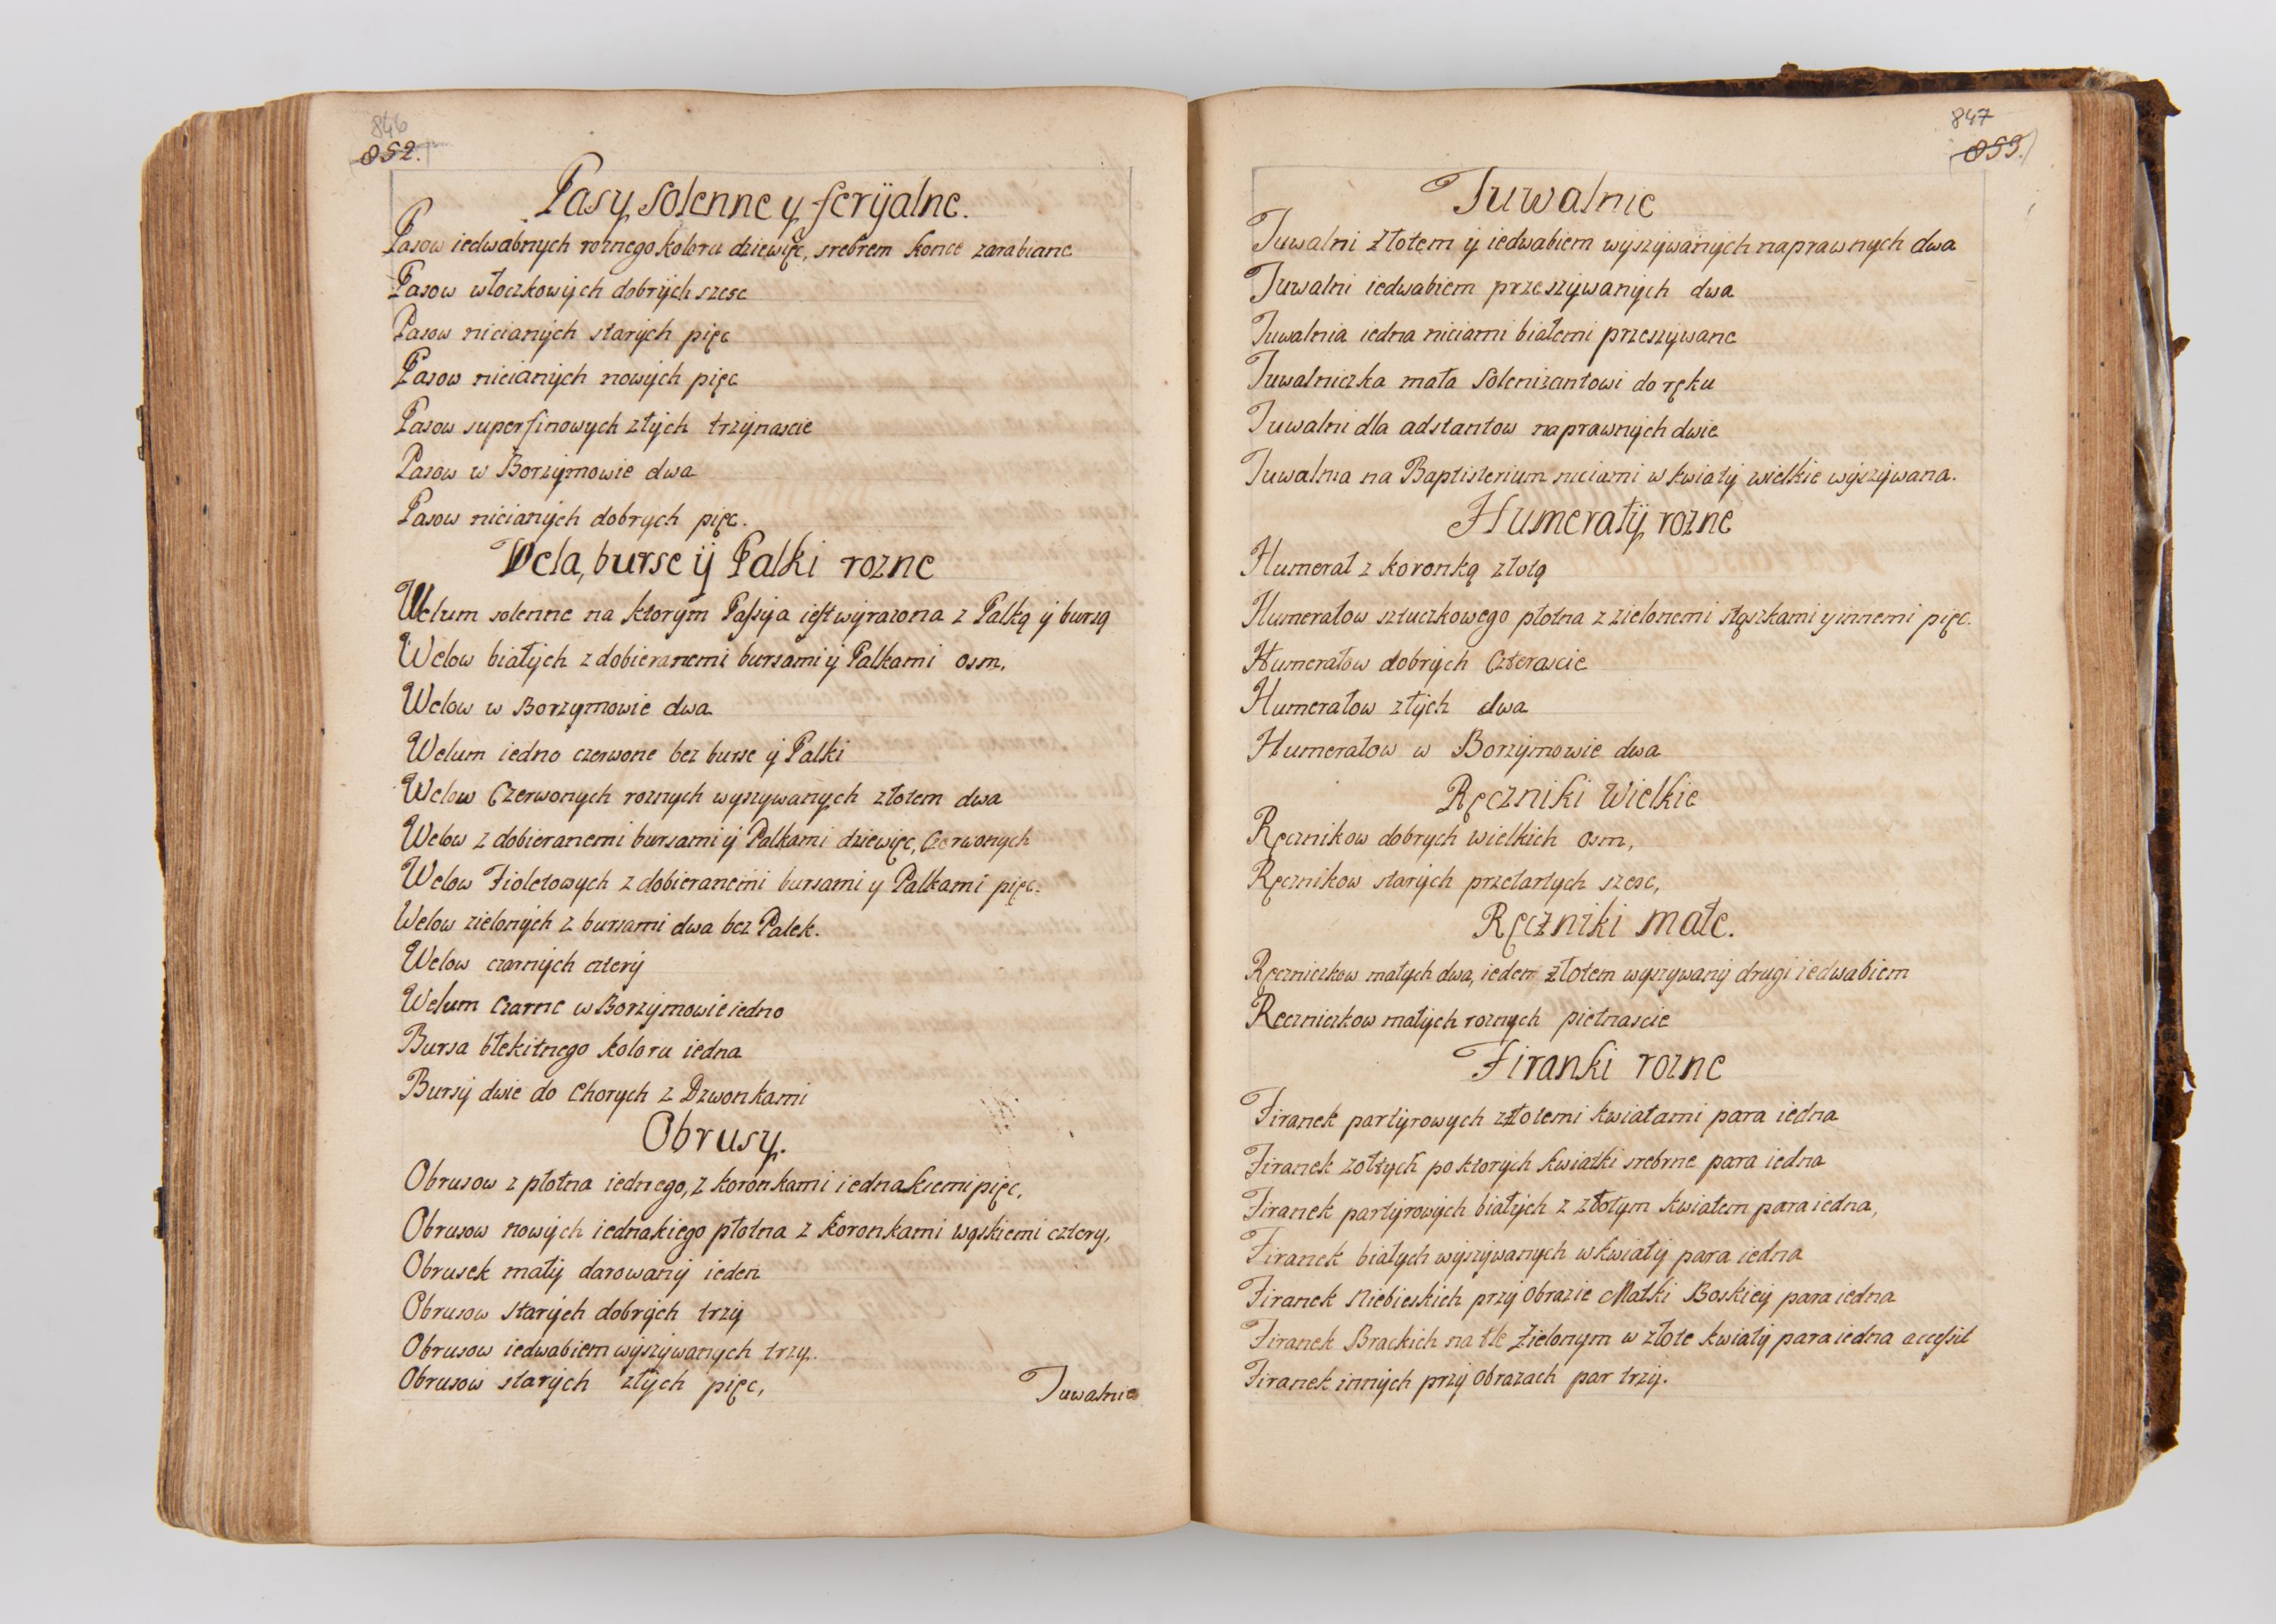 846
852.
Pasy solenne y feryialne.
Pasow iedwabnych roznego koloru dziewięc, srebrem konce zarabiane
Pasow włoczkowÿch dobrÿch szesc
Pasow nicianÿch starÿch pięc
Pasow nicianÿch nowÿch pięc
Pasow superfinowych złÿch trzÿnascie
Pasow w Borzÿmowie dwa
Pasow nicianÿch dobrych pięc.
Vela, burse ÿ Palki rozne
Welum solenne na ktorÿm Passÿa iest wÿrazona z Palką ÿ bursą
Welow białÿch z dobieranemi bursami ÿ Palkami osm,
Welow w Borzymowie dwa
Welum iedno czerwone bez burse ÿ Palki
Welow Czerwonych roznych wyszywanych złotem dwa
Welow z dobieranemi bursami ÿ Palkami dziewięc, Czerwonych
Welow Fioletowych z dobieranemi bursami y Palkami pięc.
Welow zielonÿch z bursami dwa bez Palek.
Welow czarnÿch czterÿ
Welum Czarne w Borzÿmowie iedno
Bursa błekitnego koloru iedna
Bursÿ dwie do Chorych z Dzwonkami
Obrusy.
Obrusow z płotna iednego, z koronkami iednakiemi pięc,
Obrusow nowÿch iednakiego płotna z koronkami wąskiemi cztery,
Obrusek małÿ darowanÿ ieden
Obrusow starÿch dobrÿch trzÿ
Obrusow iedwabiem wÿszÿwanych trzy.
Obrusow starÿch złÿch pięc,
Tuwalnie
847
853.
Tuwalnie
Tuwalni złotem ÿ iedwabiem wÿszÿwanÿch naprawnych dwa
Tuwalni iedwabiem przeszÿwanÿch dwa
Tuwalnia iedna niciami białemi przeszÿwane
Tuwalniczka mała Solenizantowi do ręku
Tuwalni dla adstantow naprawnÿch dwie
Tuwalnia na Baptisterium niciami w kwiatÿ wielkie wÿszÿwana.
Humerałÿ rozne
Humerał z koronką złotą
Humerałow sztuczkowego płotna z zielonemi stąszkami y innemi pięc.
Humerałow dobrÿch Czterascie
Humerałow złÿch dwa
Humerałow w Borzÿmowie dwa
Ręczniki Wielkie
Ręcznikow dobrych wielkich osm,
Ręcznikow starÿch przetartych szesc,
Ręczniki małe.
Ręczniczkow małych dwa, ieden złotem wyszywanÿ drugi iedwabiem
Reczniczkow małÿch roznych pietnascie
Firanki rozne
Firanek partÿrowych złotemi kwiatami para iedna
Firanek zołtych po ktorÿch kwiatki srebrne para iedna
Firanek partÿrowÿch białÿch z złotym kwiatem para iedna,
Firanek białych wÿszÿwanych w kwiatÿ para iedna
Firanek Niebieskich przÿ Obrazie Matki Boskieÿ para iedna
Firanek Brackich na tle Zielonym w złote kwiatÿ para iedna accessit
Firanek innÿch przÿ Obrazach par trzÿ.